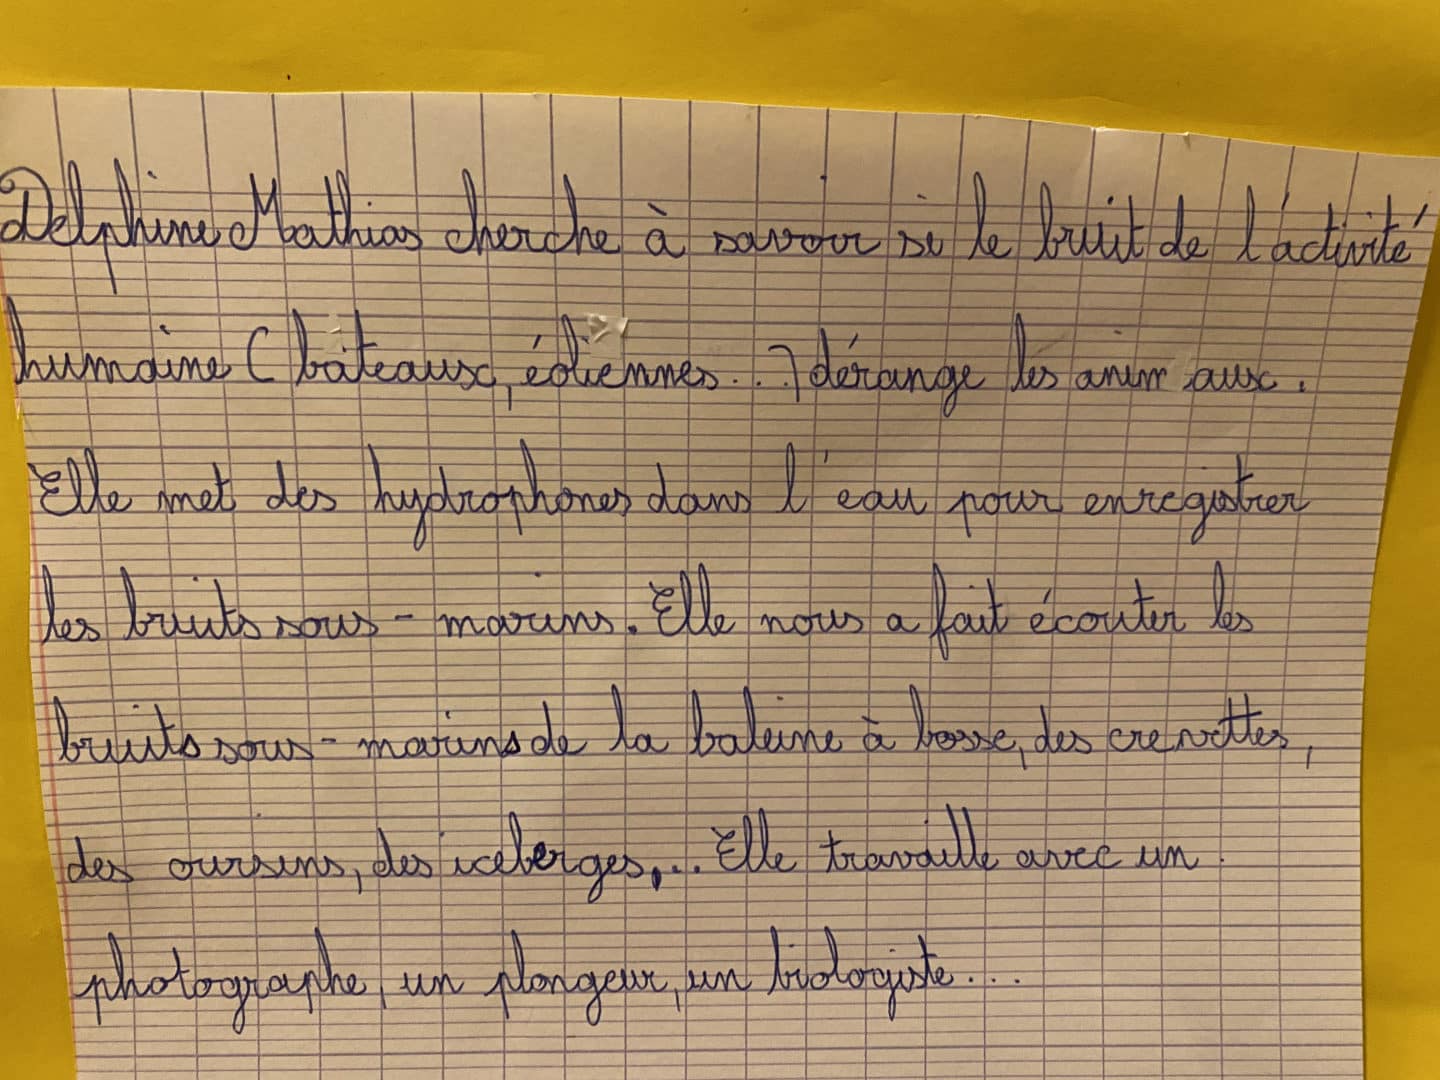 Delphine Mathias cherche à savoir si le bruit de l'activité
humaine (bâteaux, éoliennes...) dérange les animaux.
Elle met des hydrophones dans l'eau pour enregistrer
les bruits sous-marins. Elle nous a fait écouter les
bruits sous-marins de la baleine à bosse, des crevettes,
des oursins, des iceberges,... Elle travaille avec un
photographe, un plongeur, un biologiste...